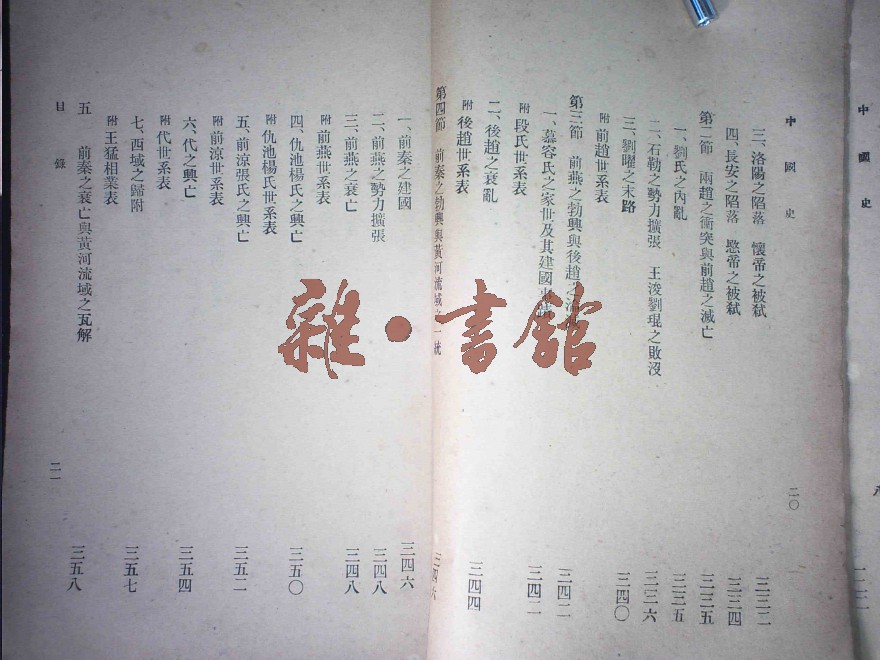 中國史
二〇
三、洛陽之陷落 懷帝之被弑
三三二
四、長安之陷落 愍帝之被弑
三三四
第二節 兩趙之衝突與前趙之滅亡
三三五
一、劉氏之內亂
三三五
二、石勒之勢力擴張 王浚劉琨之敗沒
三三六
三、劉曜之末路
三四〇
附 前趙世系表
第三節 前燕之勃興與後趙之
三四二
一、慕容氏之家世及其建國
三四二
附 段氏世系表
二、後趙之衰亂
三四四
附 後趙世系表
第四節 前秦之勃興與黃河流域之一統
三四六
一、前秦之建國
三四六
二、前燕之勢力擴張
三四八
三、前燕之衰亡
三四八
附 前燕世系表
四、仇池楊氏之興亡
三五〇
附 仇池楊氏世系表
五、前涼張氏之興亡
三五二
附 前涼世系表
六、代之興亡
三五四
附 代世系表
七、西域之歸附
三五七
附 王猛相業表
五 前秦之衰亡與黃河流域之瓦解
三五八
目錄
二一
中國史
雜·書館